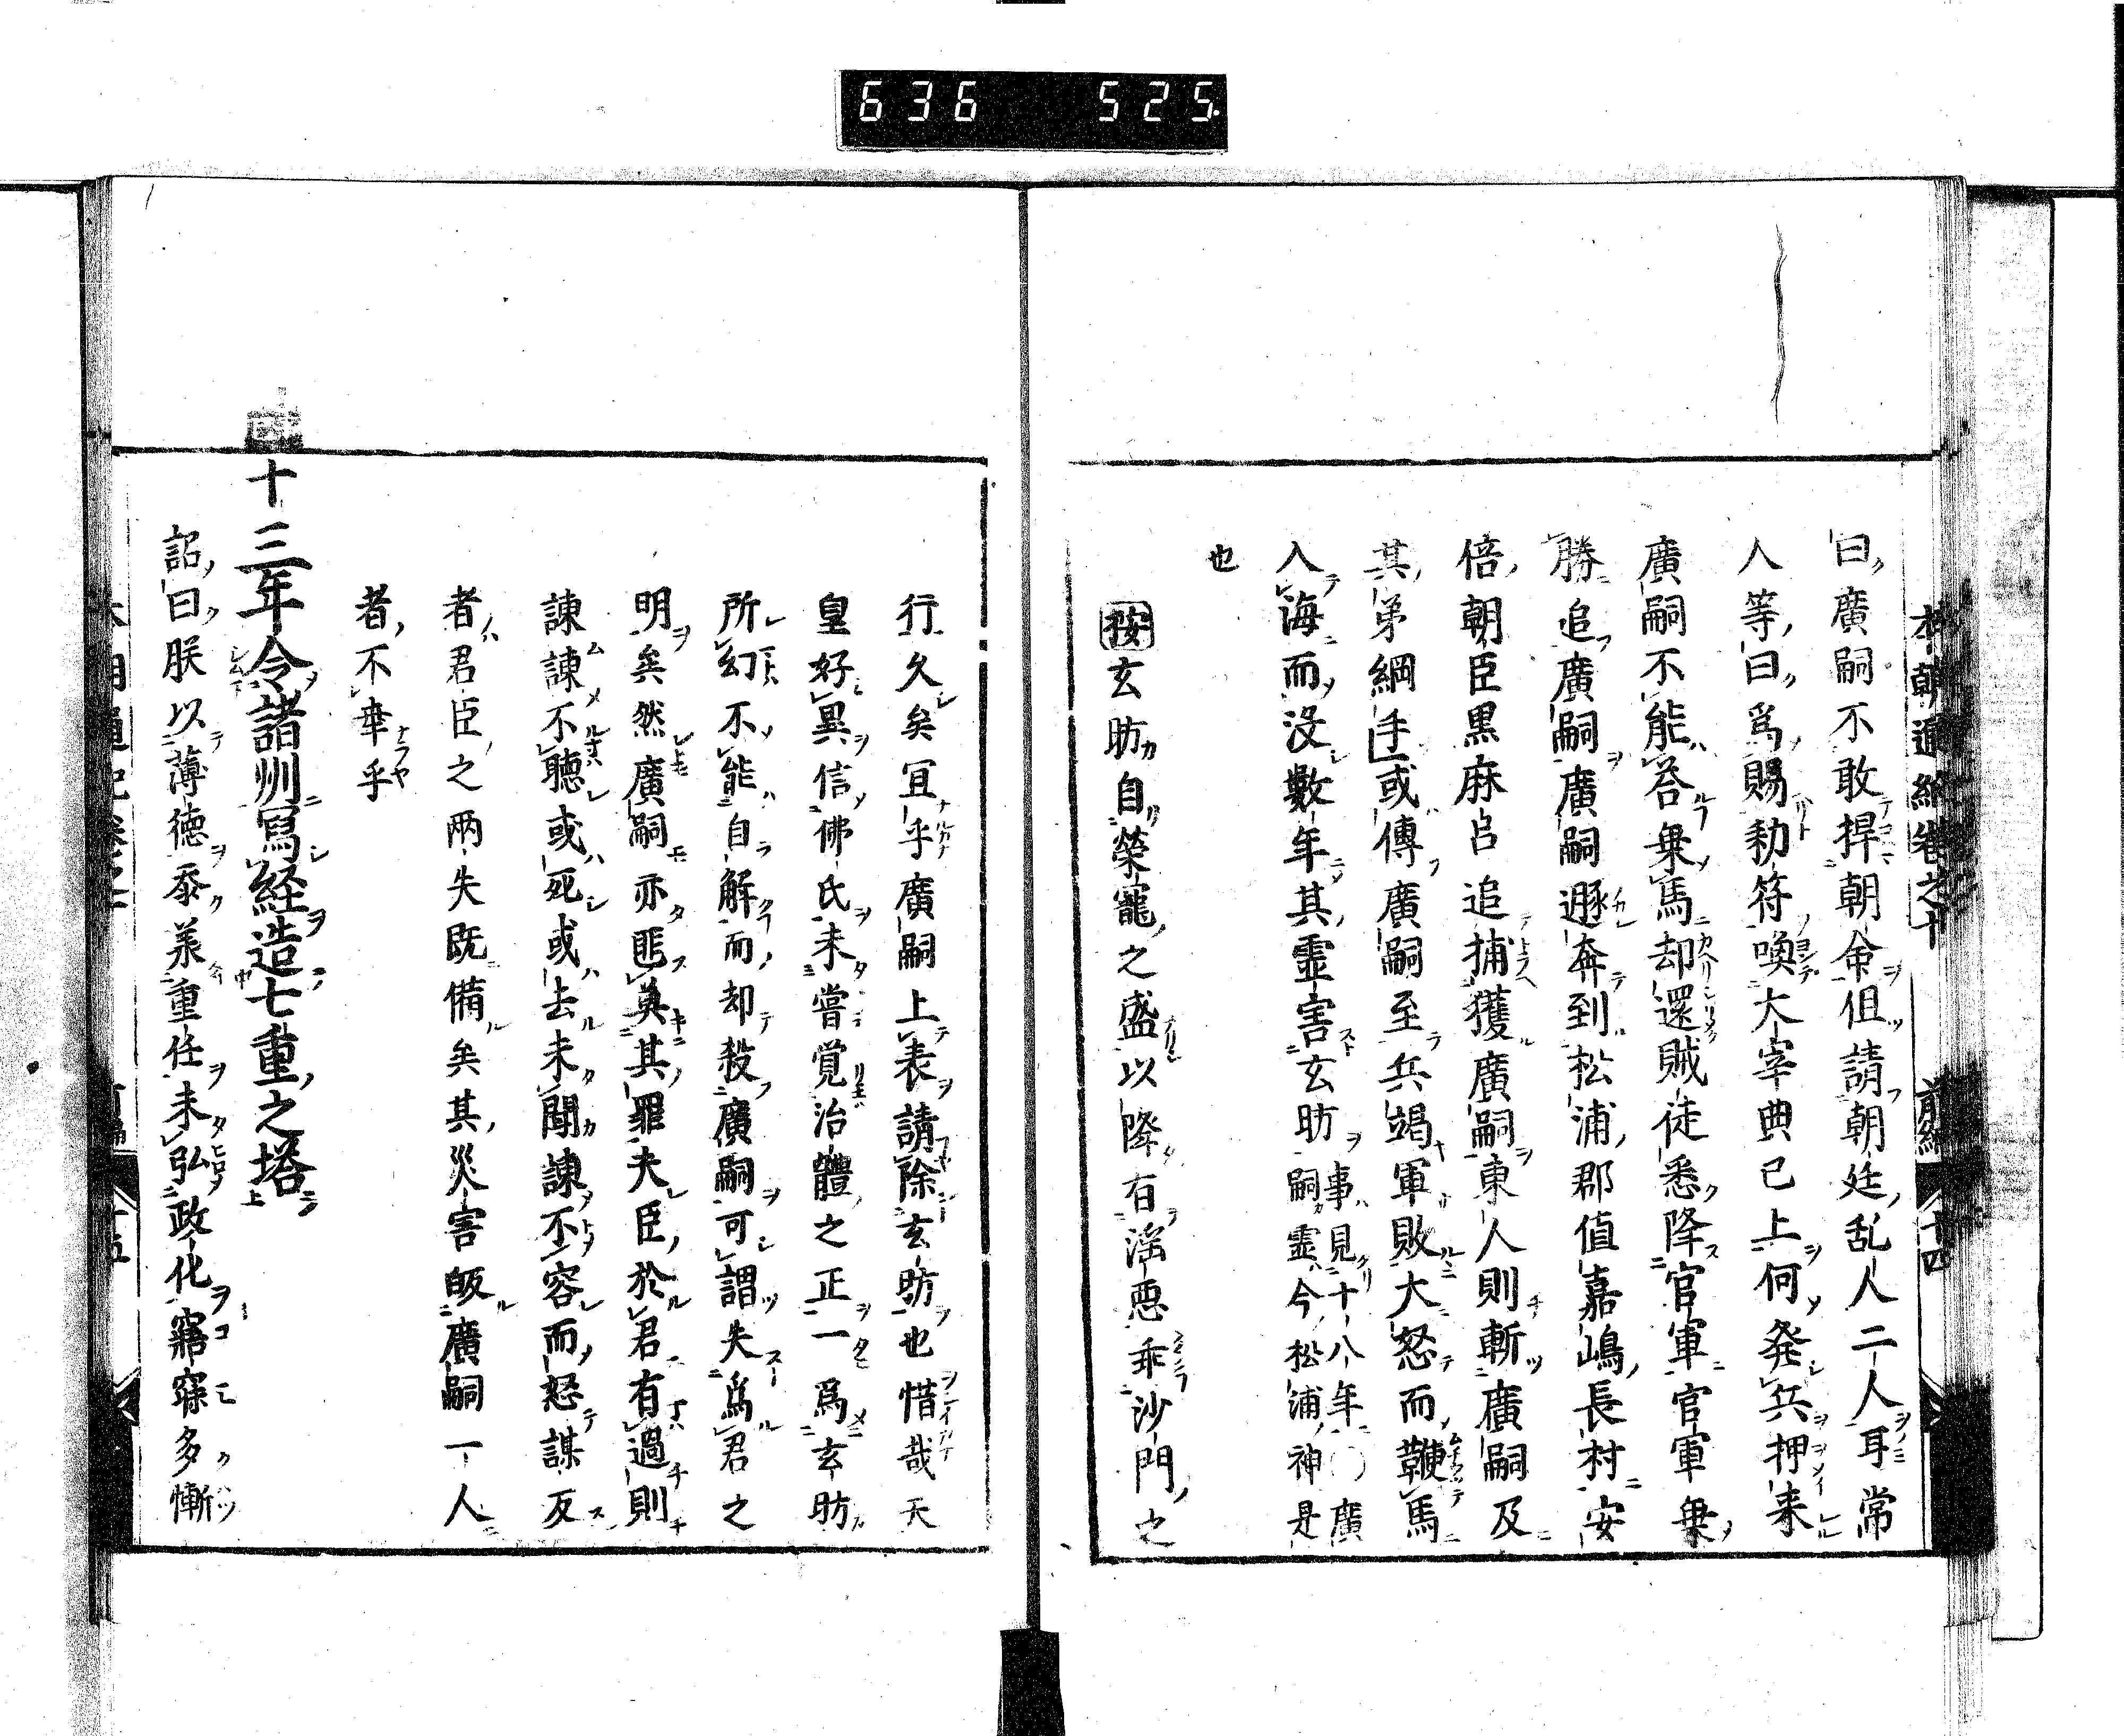 636 525
本朝通紀卷之十 前編 十四
曰廣嗣不敢捍朝命但請朝廷乱人二人耳常
人等曰爲賜勅符喚大宰典已上何発兵押来
廣嗣不能荅乗馬却還賊徒悉降官軍官軍乗
勝追廣嗣廣嗣遯奔到松浦郡値嘉嶋長村安
倍朝臣黒麻呂追捕獲廣嗣東人則斬廣嗣及
其弟綱手或傳廣嗣至兵竭軍敗大怒而鞭馬
入海而没數年其霊害玄昉事見十八年〇廣嗣霊今松浦神是
也
按玄昉自榮寵之盛以降有滛悪乖沙門之
行久矣冝乎廣嗣上表請除玄昉也惜哉天
皇好異信佛氏未嘗覚治體之正一爲玄昉
所幻不能自解而却殺廣嗣可謂失爲君之
明矣然廣嗣亦匪莫其罪夫臣於君有過則
諌諌不聴或死或去未聞諌不容而怒謀反
者君臣之兩失既備矣其災害皈廣嗣一人
者不幸乎
十三年令諸州寫経造七重之塔
詔曰朕以薄德忝羕重任未弘政化寤寐多慚